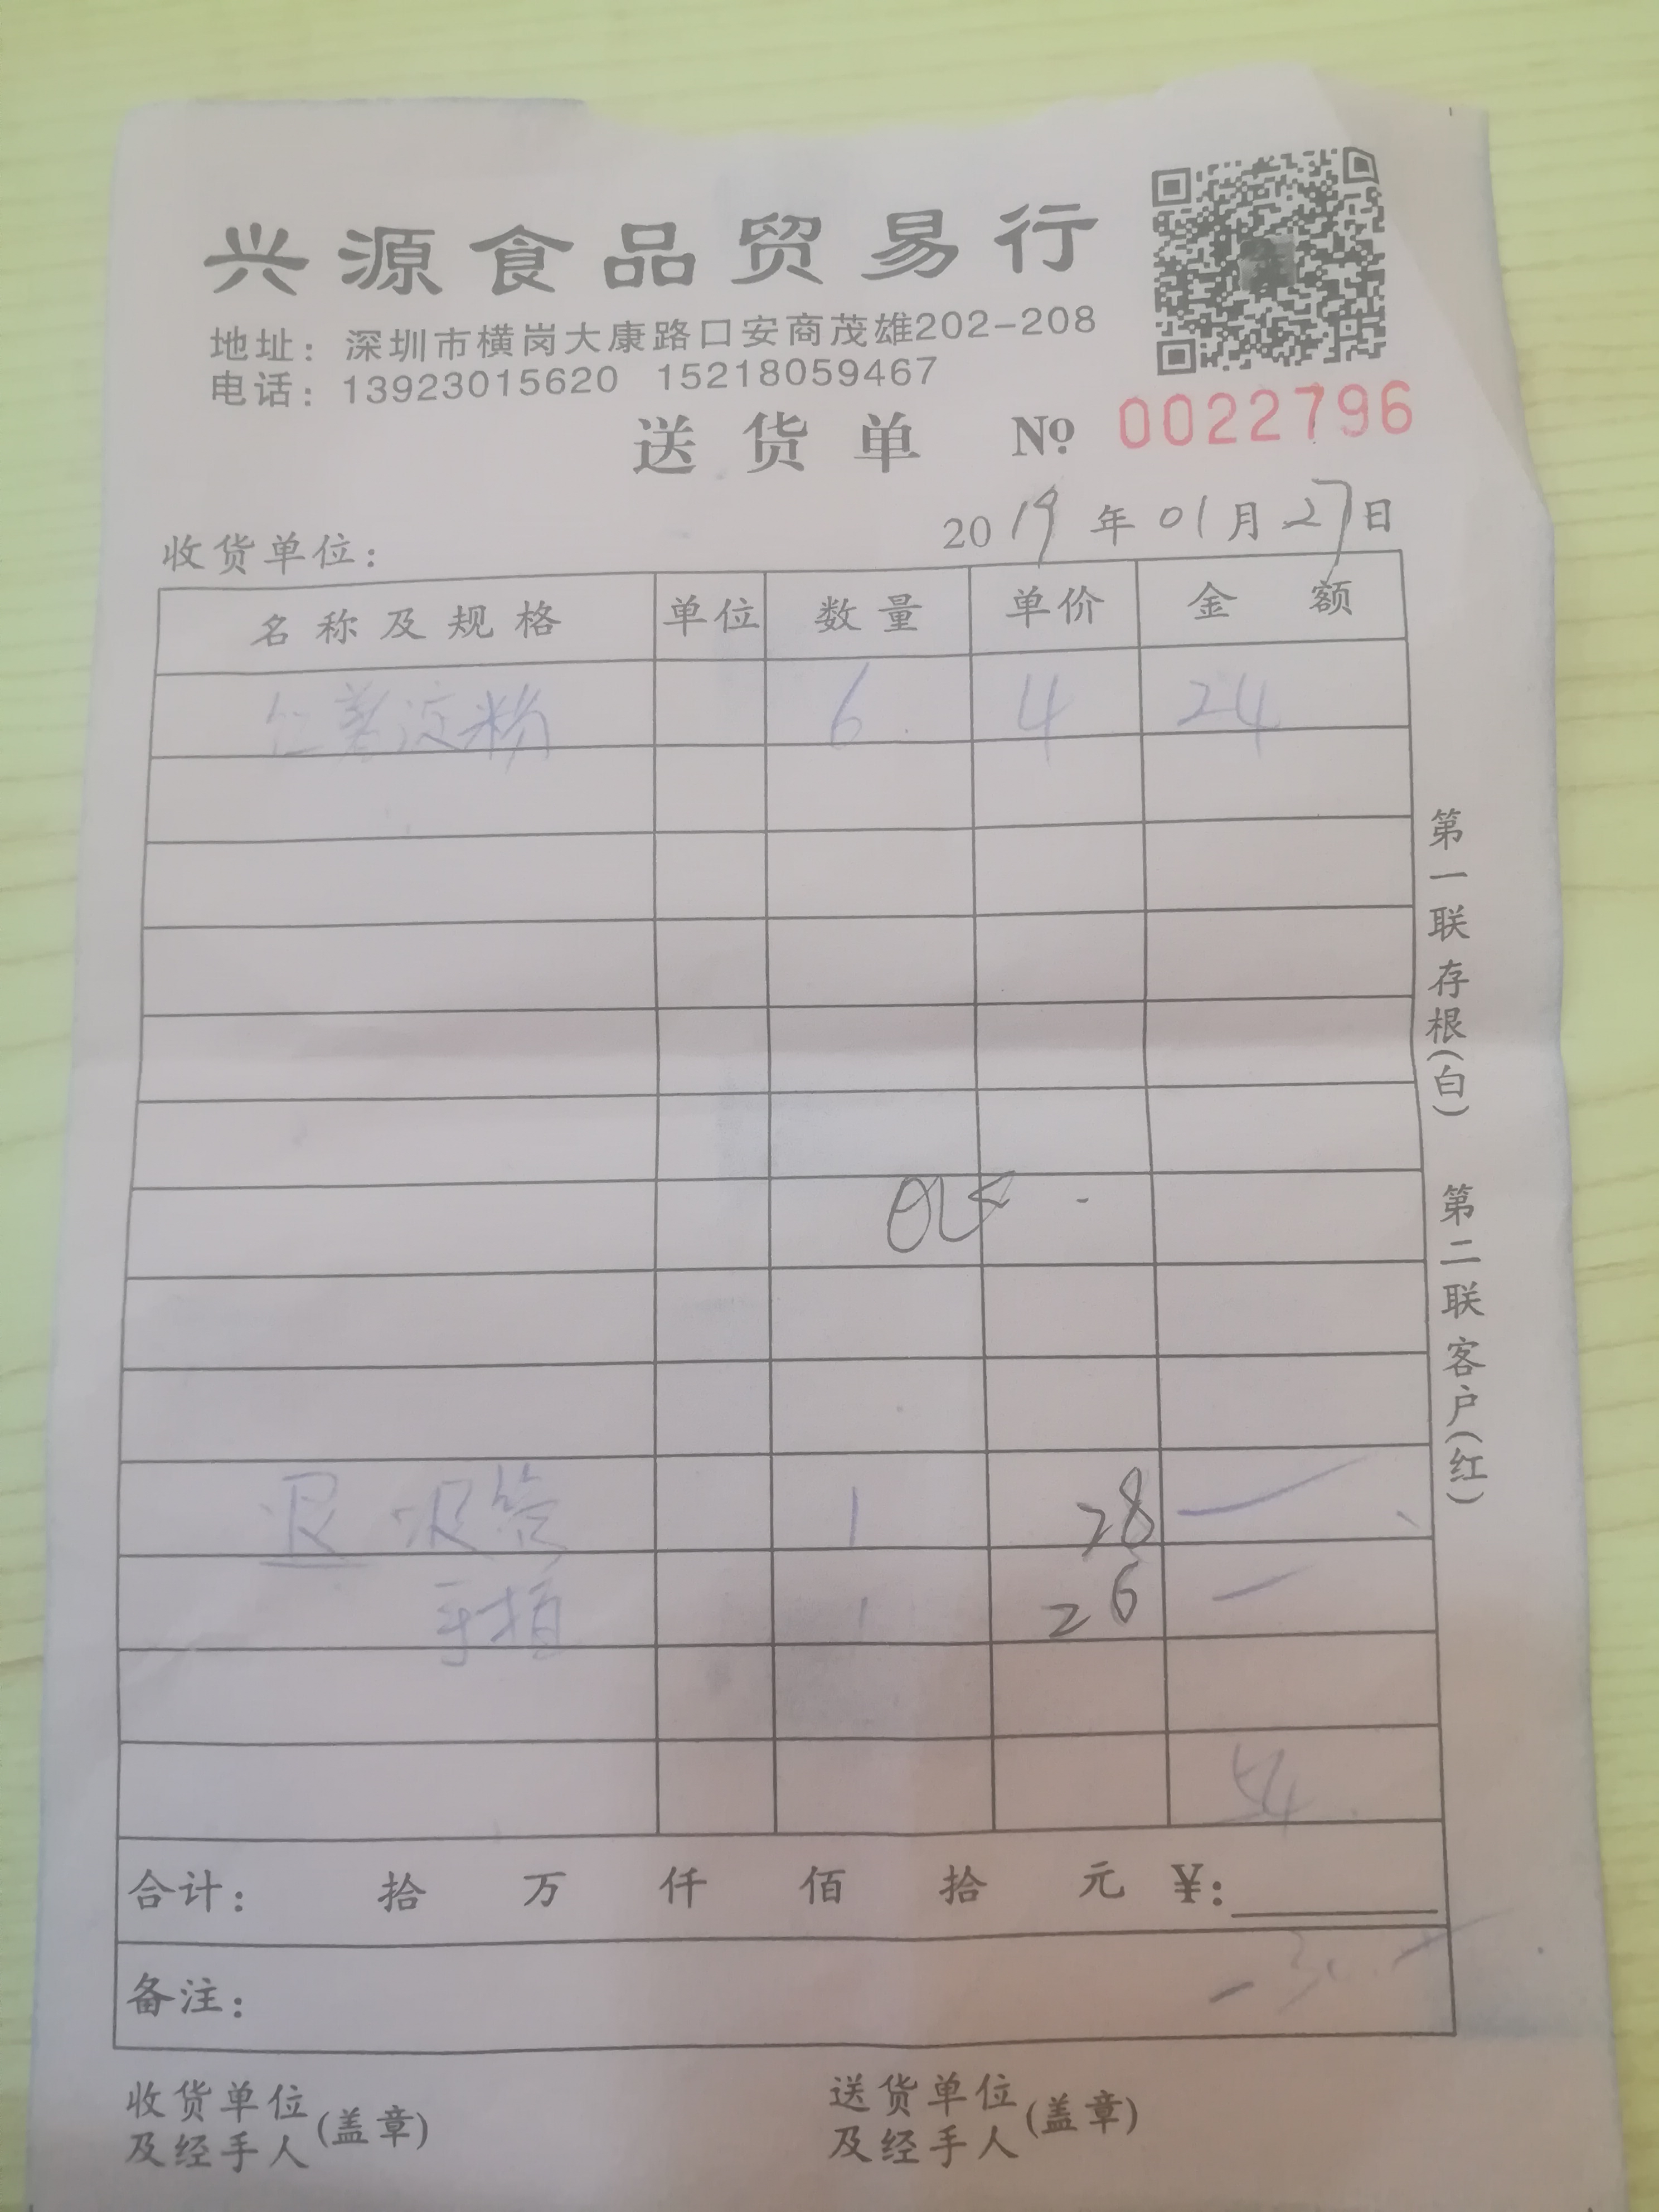 兴源食品贸易行
地址：深圳市横岗大康路口安商茂雄202-208
电话：13923015620 15218059467
送货单 No 0022796
2019年01月27日
收货单位：
名称及规格 单位 数量 单价 金额
红薯淀粉 6 4 24
OK
退 吸管 1 28
手拉 1 26
54
合计： 拾 万 仟 佰 拾 元 ¥：
备注： -30
收货单位及经手人(盖章)
送货单位及经手人(盖章)
第一联存根(白) 第二联客户(红)